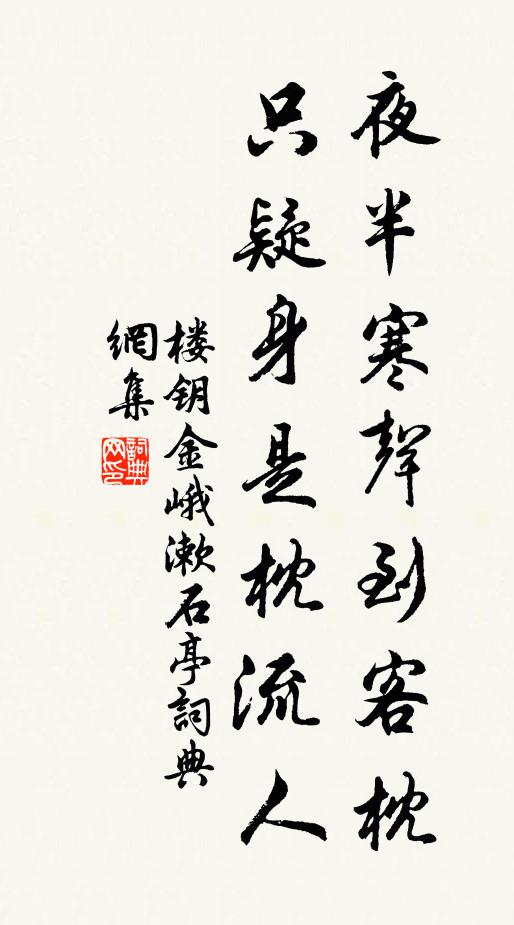 夜半寒聲到客枕
只疑身是枕流人
楼钥金峨漱石亭詞典
網集
詞典網印